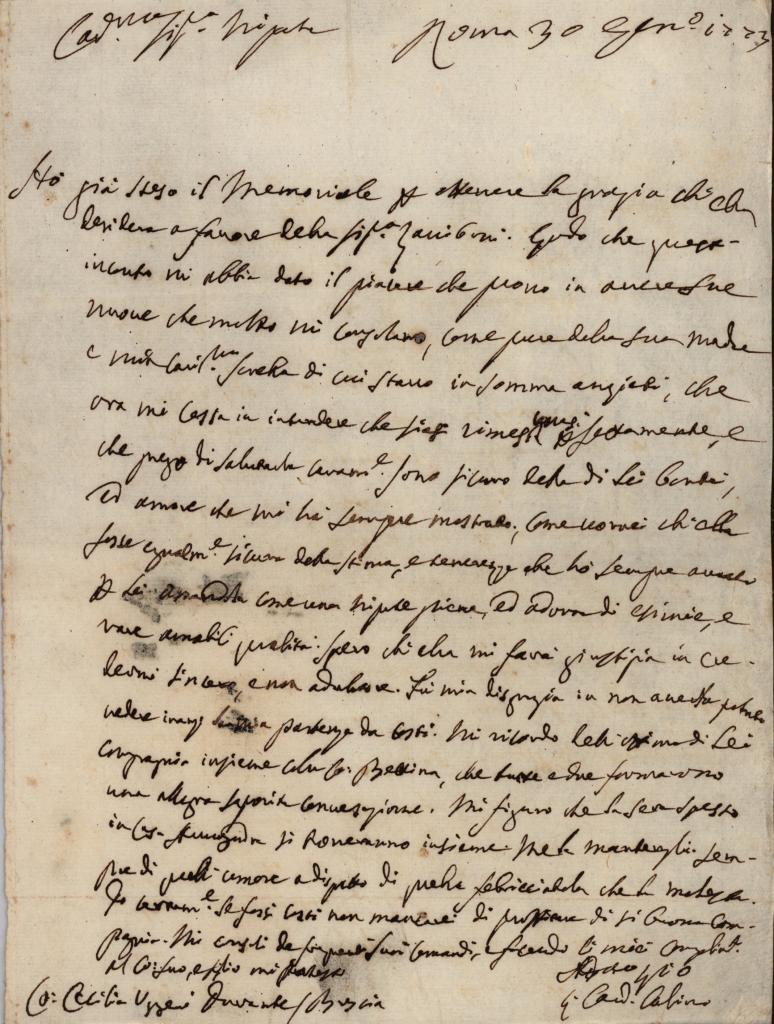 Car.ma Sig.ra Nipote Roma 30 Gen.o 1773
Hò già steso il Memoriale p ottenere la grazia ch'ella
desidera a favore della Sig.ra Zamboni. Godo che quest'
incontro mi abbia dato il piacere che provo in avere sue
nuove che molto mi consolano, come pure della sua Madre
e mia Cariss.ma Sorella di cui stavo in somma angietà, che
ora mi cessa in intendere che siasi rimessa quasi perfettamente, e
che prego di salutarla caram.e. Sono sicuro della di Lei bontà,
ed amore che mi hà sempre mostrato, come vorrei ch'ella
fosse egualm.e sicura della stima, e tenerezza che hò sempre avuto
p Lei amandola come una Nipote piena, ed adorna di esimie, e
rare amabili qualità. Spero ch'ella mi farà giustizia in cre-
dermi sincero, e non adulatore. Fù mia disgrazia in non averla potuto
vedere inanzi la mia partenza da costì. Mi ricordo dell'ottima di Lei
compagnia insieme colla Co: Bettina, che tutte e due formavano
una allegra saporita conversazione. Mi figuro che la sera spesso
in Casa si troveranno insieme. Me la mantenghi sem-
pre di quell'umore a dispetto di quella febbriciatola che la molesta.
Io certam.e se fossi costì non mancarei di profittare di sì buona com-
pagnia. Mi consoli de frequenti suoi comandi, e facendo li miei complim.ti
al Co: suo, e figlio mi protesto
Aff.mo Zio
Co: Cecilia Uggeri Durante / Brescia Il Card. Calino